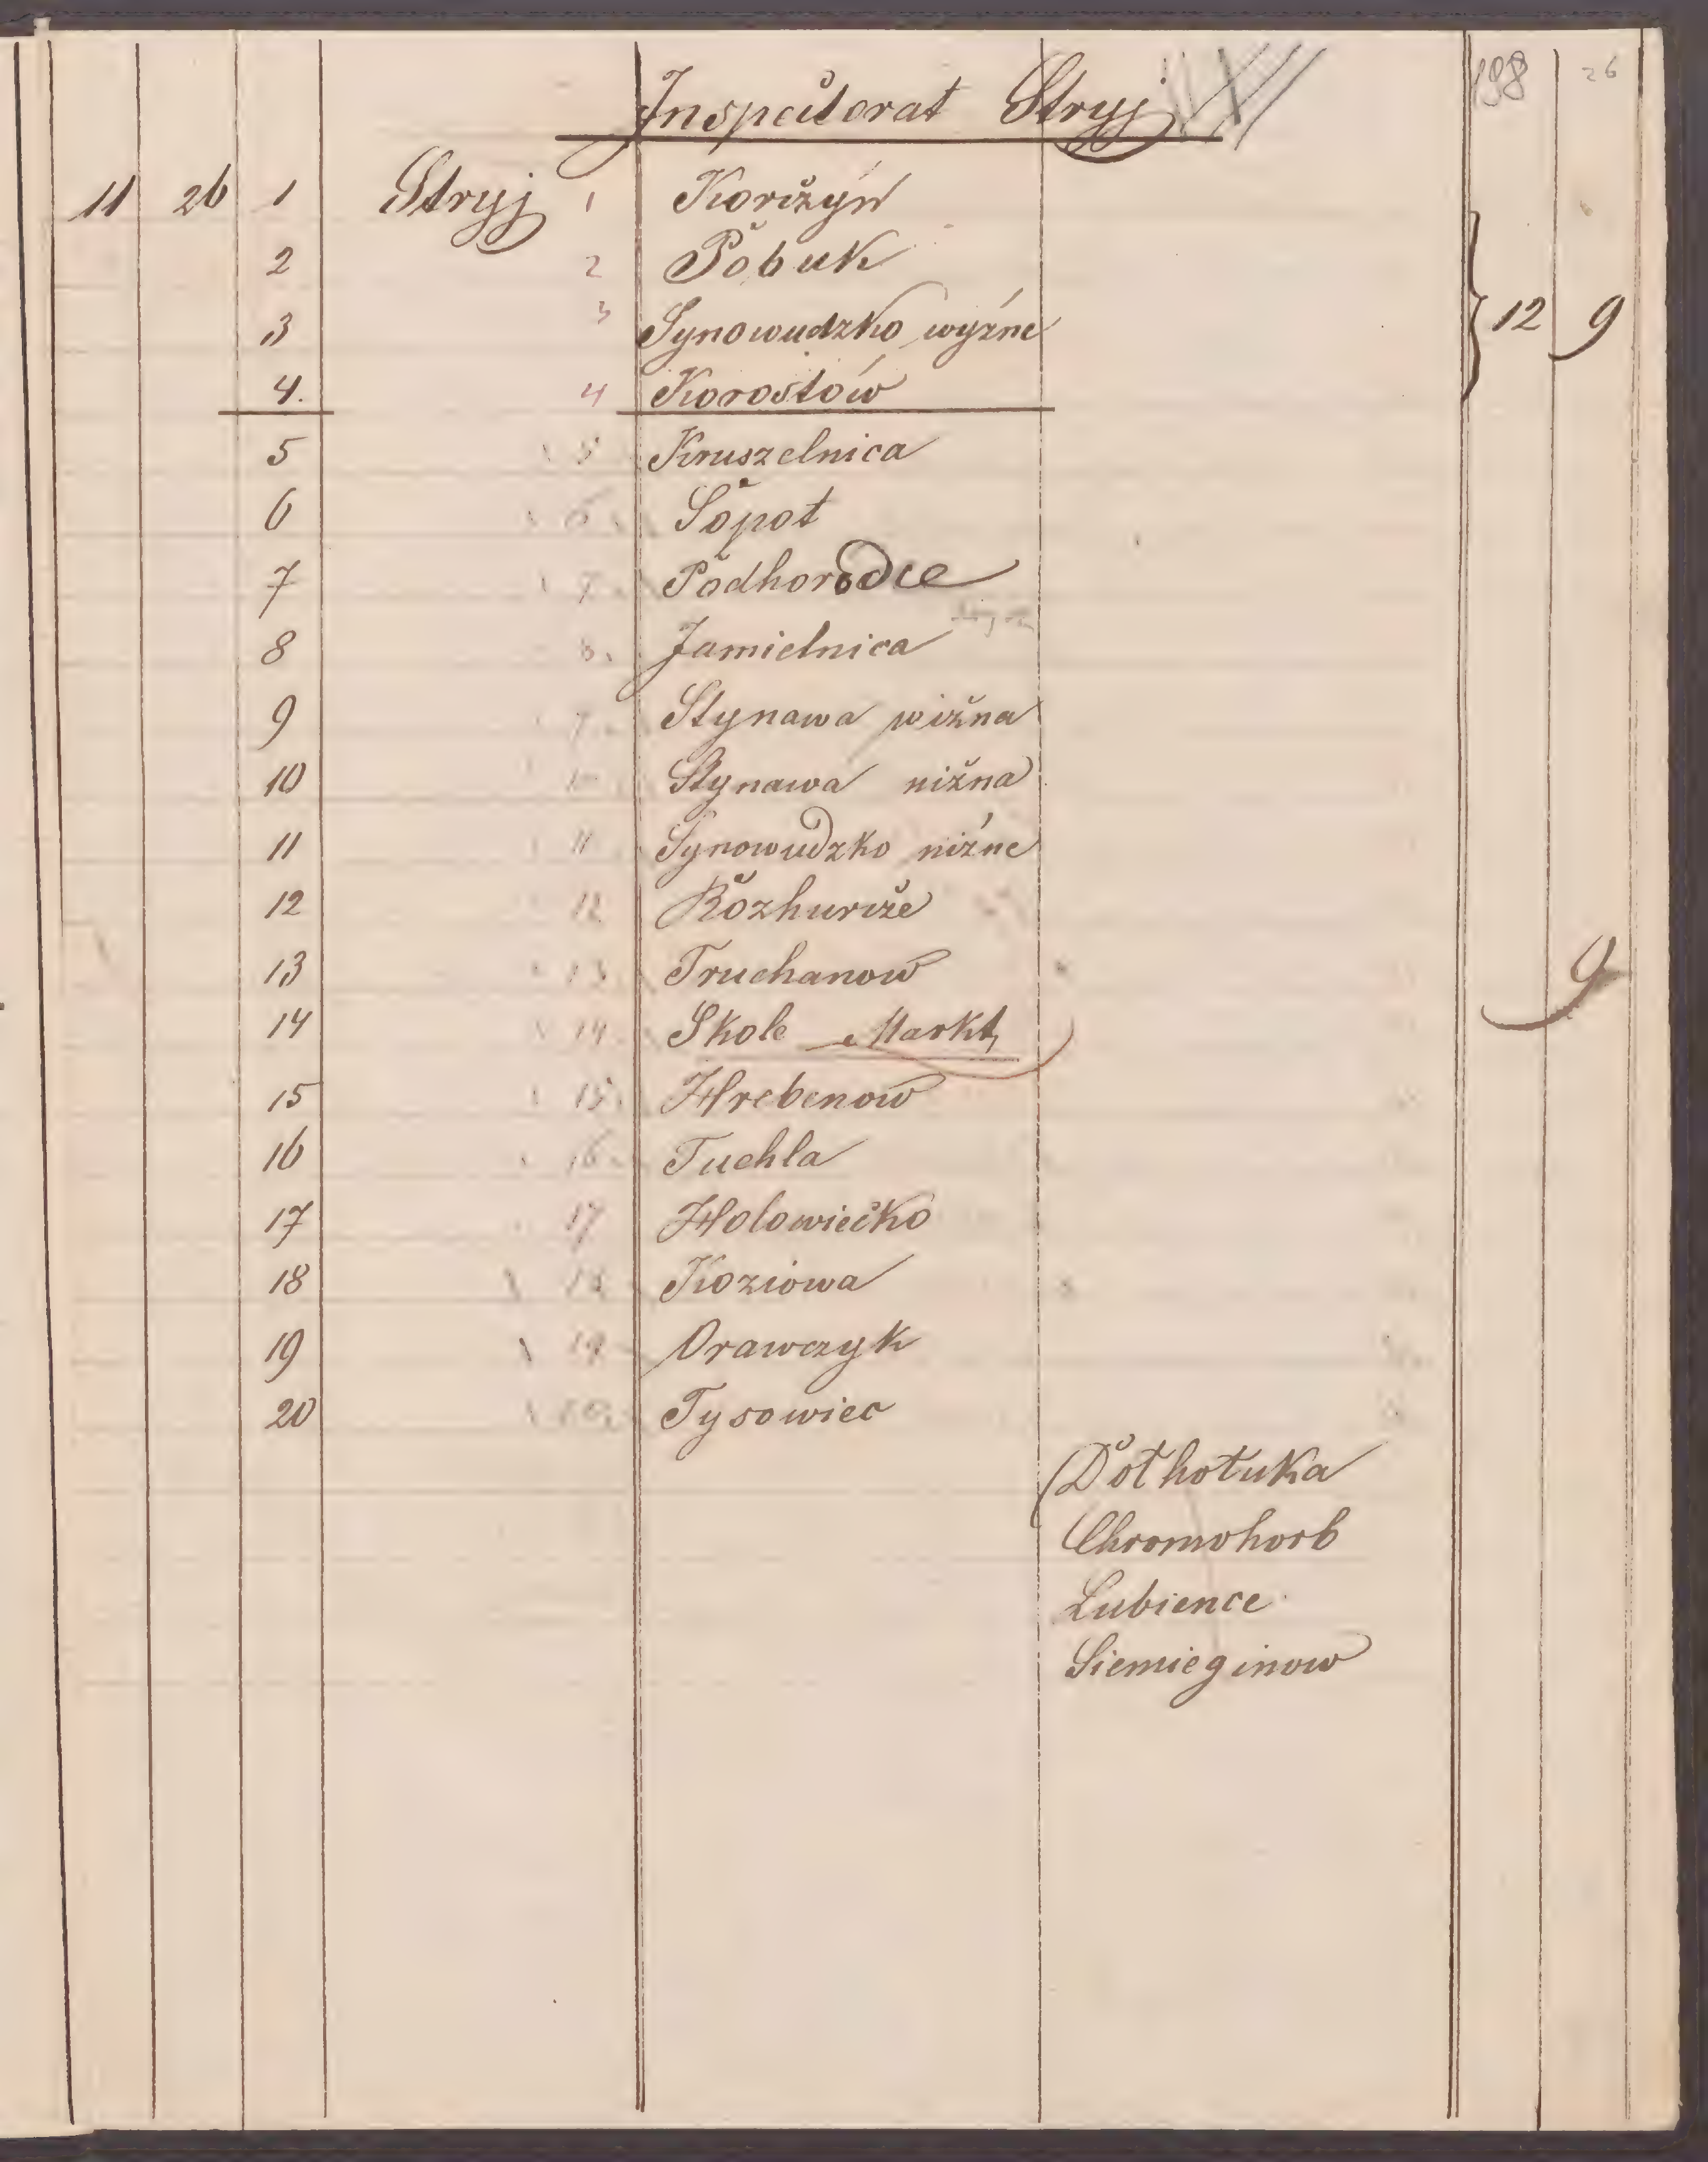 198 26
Inspectorat Stryj
11 26 1 Stryj 1 Koržyń
2 2 Pobuk
3 3 Synowudzko wyżne } 12 9
4. 4 Korostów
5 5 Kruszelnica
6 6 Sopot
7 7 Podhorodce
8 8. Jamielnica
9 Stynawa wižna
10 10 Stynawa nižna
11 11 Synowudzko niżne
12 12 Rozhurže
13 13 Truchanow 9
14 14 Skole Markt
15 15 Hrebenow
16 16 Tuchla
17 17 Holowiečko
18 18 Koziowa
19 19 Orawczyk
20 20 Tysowiec
Dołhołuka
Chromohorb
Lubience
Siemieginow